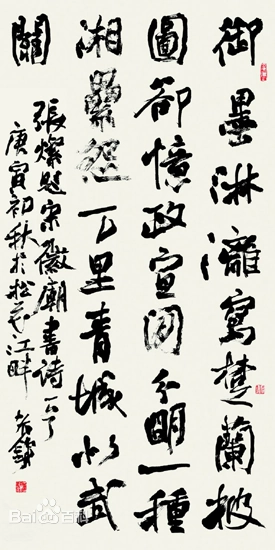 御墨淋灕寫楚蘭披
圖卻憶政宣間分明一種
湘纍怨万里青城似武
關
張燦題宋徽廟書詩一
庚寅初秋於松花江畔
Bai百科